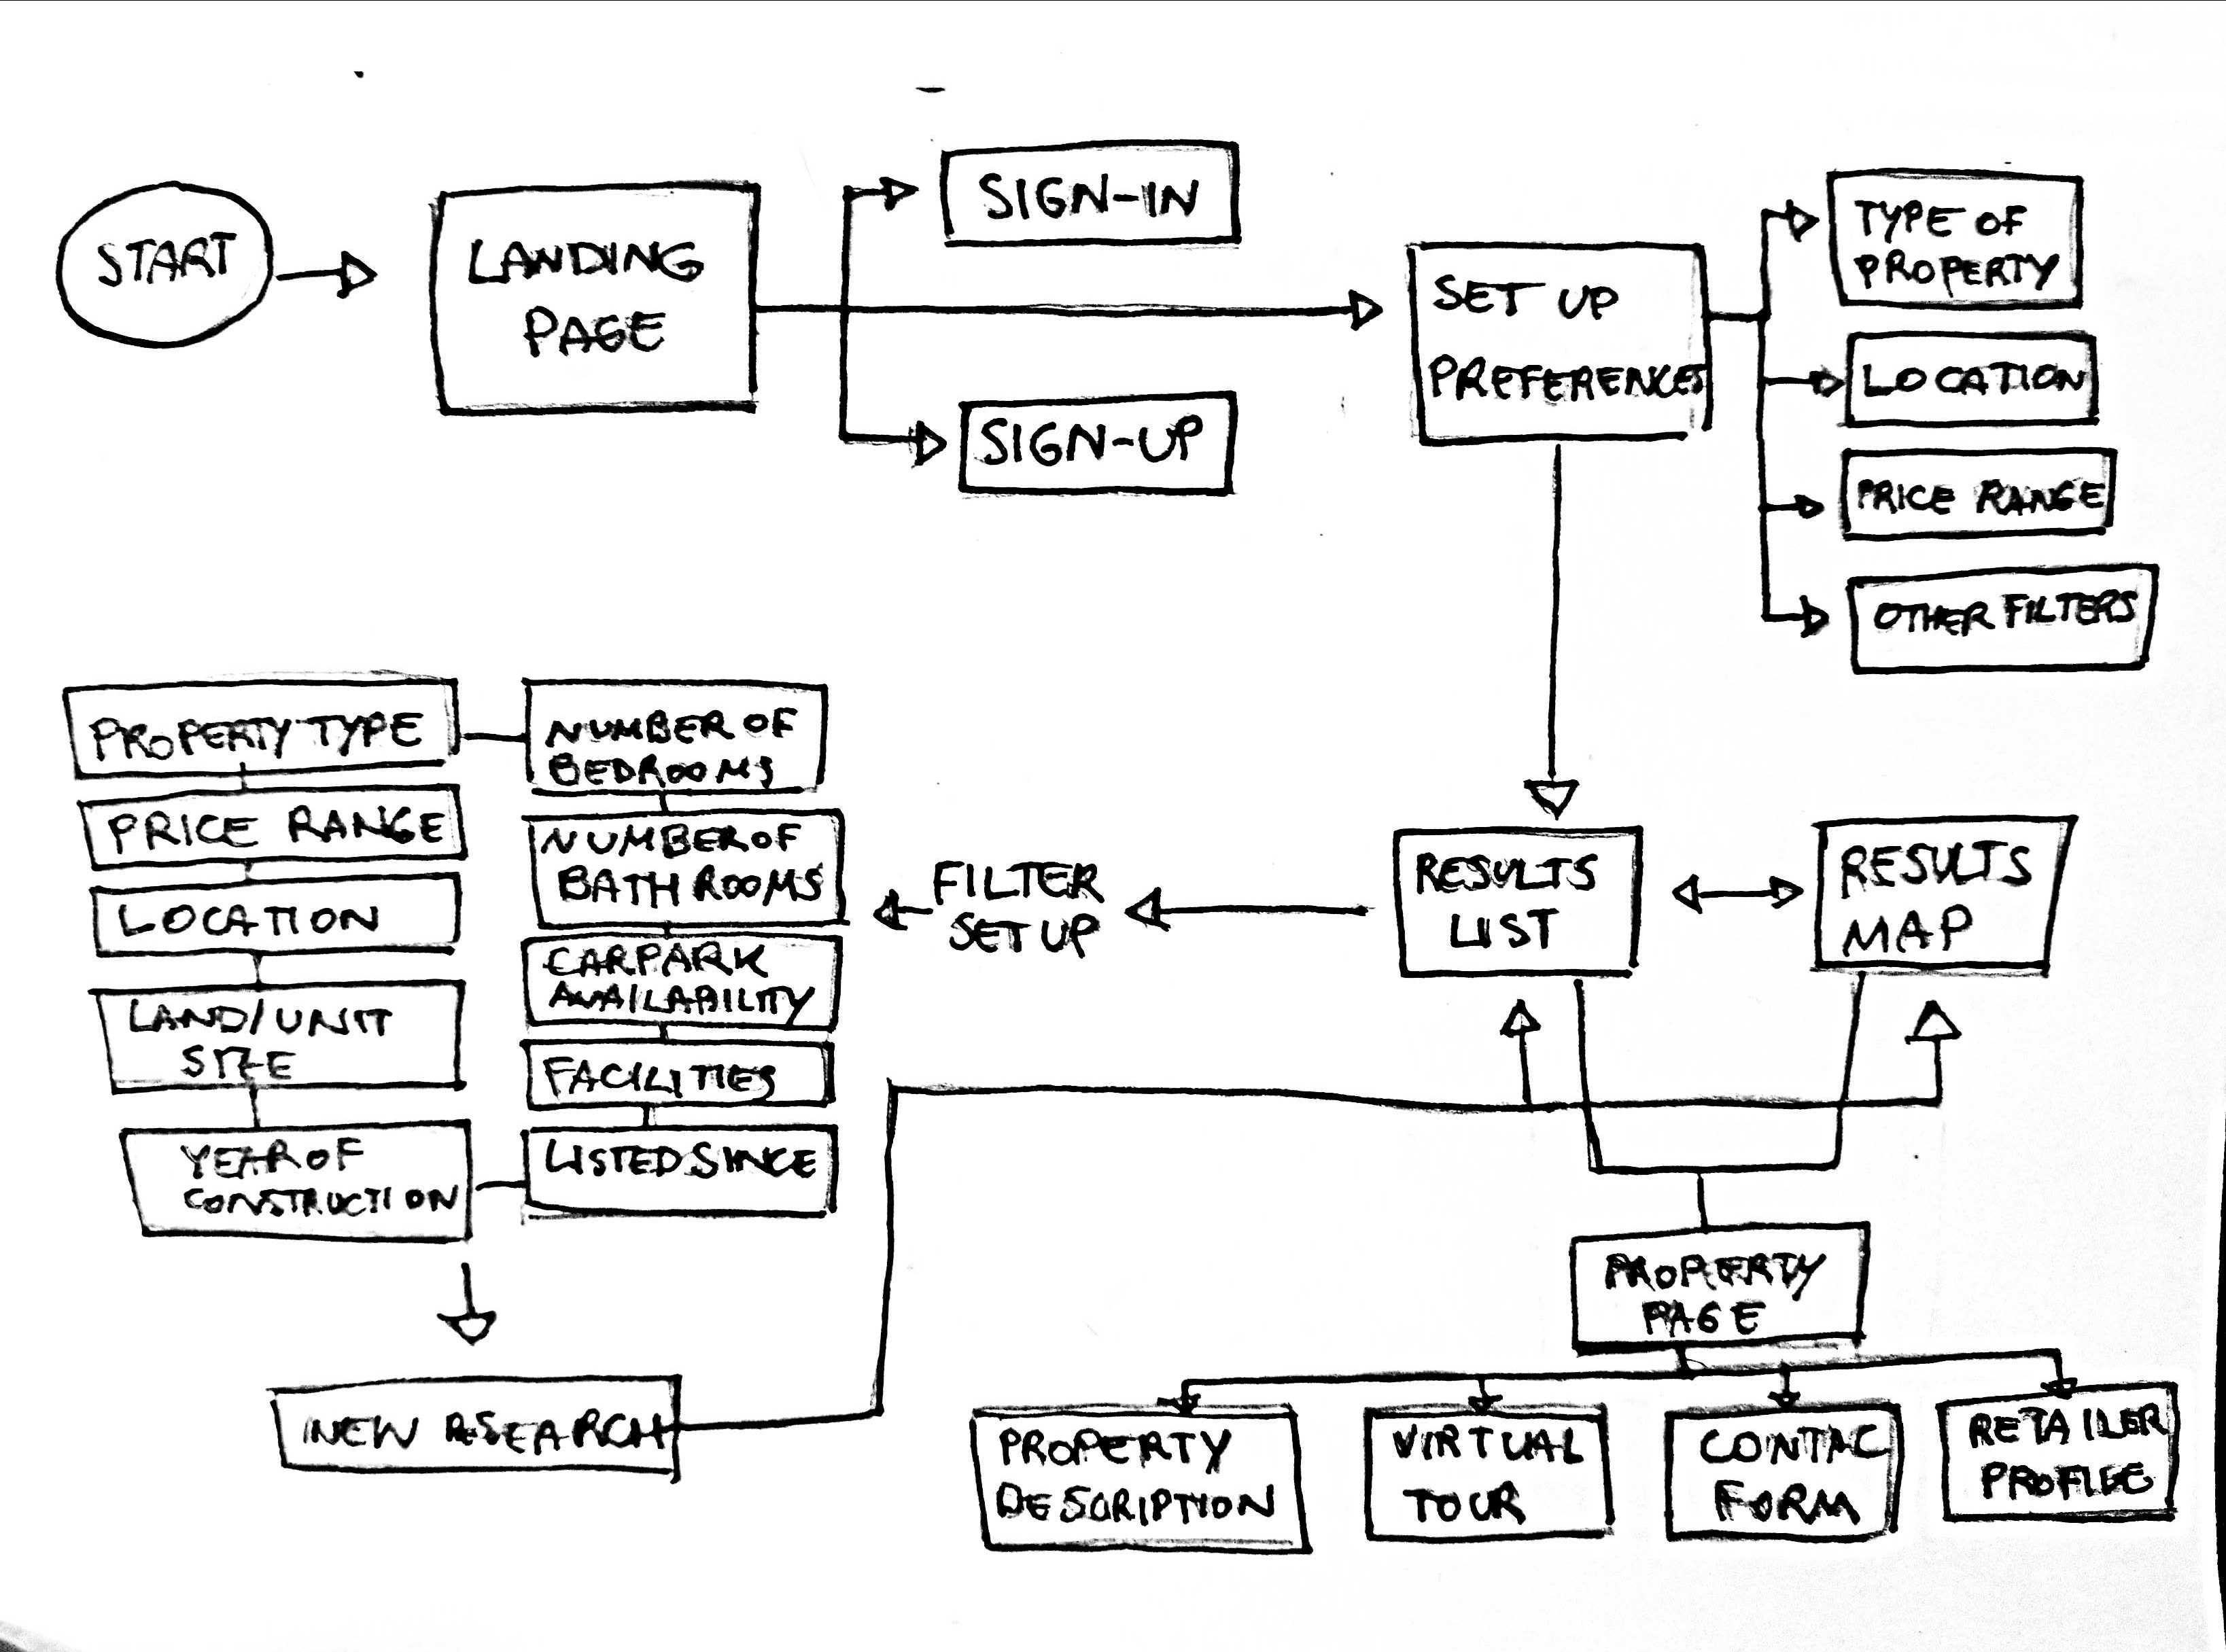 START
LANDING
PAGE
SIGN-IN
SIGN-UP
SET UP
PREFERENCES
TYPE OF
PROPERTY
LOCATION
PRICE RANGE
OTHER FILTERS
RESULTS
LIST
RESULTS
MAP
FILTER
SET UP
PROPERTY TYPE
PRICE RANGE
LOCATION
LAND/UNIT
SIZE
YEAR OF
CONSTRUCTION
NUMBER OF
BEDROOMS
NUMBER OF
BATHROOMS
CARPARK
AVAILABILITY
FACILITIES
LISTED SINCE
NEW RESEARCH
PROPERTY
PAGE
PROPERTY
DESCRIPTION
VIRTUAL
TOUR
CONTAC
FORM
RETAILER
PROFILE